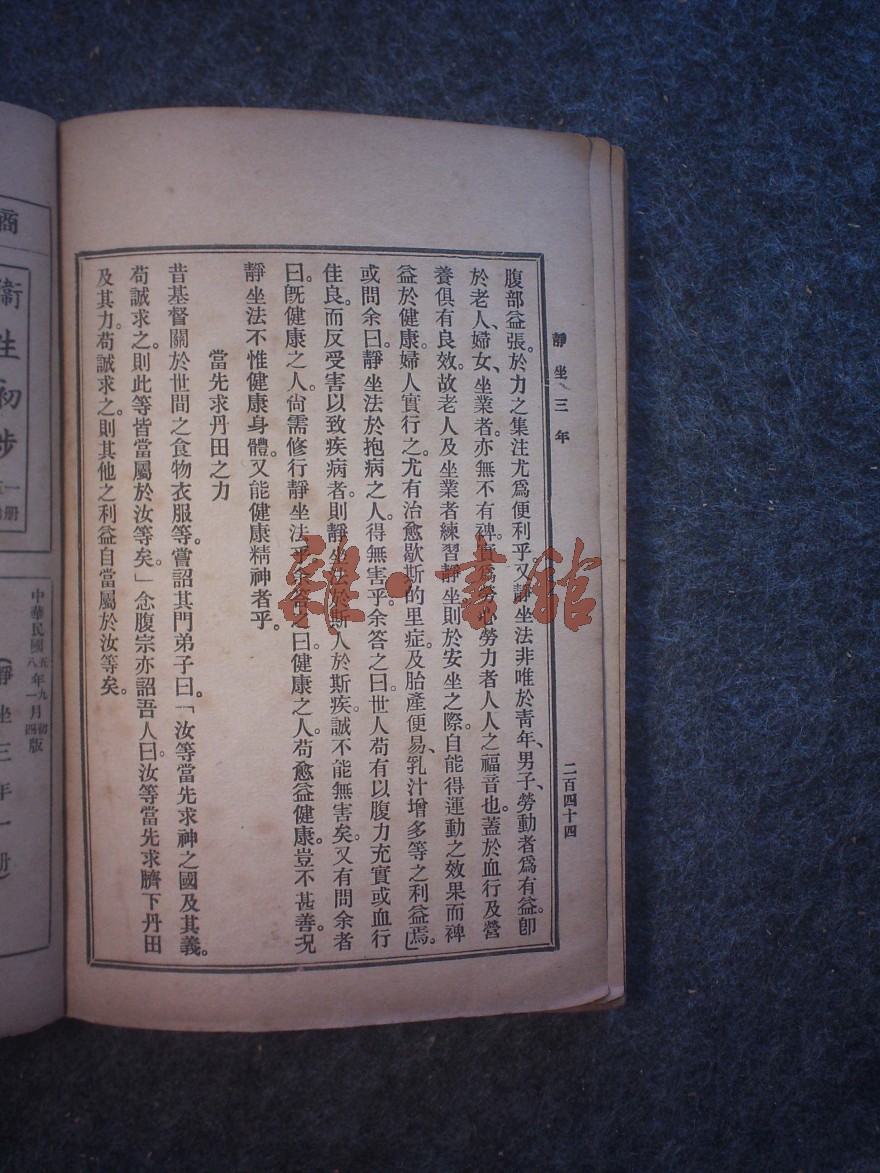 靜坐三年
二百四十四
腹部益張。於力之集注尤爲便利乎。又靜坐法非唯於靑年、男子、勞動者爲有益。卽
於老人、婦女、坐業者。亦無不有裨。實爲勞心勞力者人人之福音也。蓋於血行及營
養俱有良效。故老人及坐業者練習靜坐則於安坐之際。自能得運動之效果而裨
益於健康。婦人實行之。尤有治愈歇斯的里症及胎產便易、乳汁增多等之利益焉。」
或問余曰。靜坐法於抱病之人。得無害乎。余答之曰。世人苟有以腹力充實或血行
佳良。而反受害以致疾病者。則靜坐法於斯人於斯疾。誠不能無害矣。又有問余者
曰。旣健康之人。尙需修行靜坐法乎。余答之曰。健康之人。苟愈益健康。豈不甚善。况
靜坐法不惟健康身體。又能健康精神者乎。
當先求丹田之力
昔基督關於世間之食物衣服等。嘗詔其門弟子曰。「汝等當先求神之國及其義。
苟誠求之。則此等皆當屬於汝等矣。」念腹宗亦詔吾人曰。汝等當先求臍下丹田
及其力。苟誠求之。則其他之利益自當屬於汝等矣。
雜·書館
商
衞生初步
一
册
中華民國五年九月初版
八年一月四版
(靜坐三年一册)